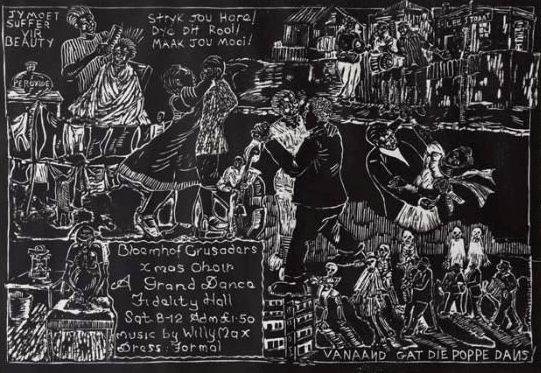 JY MOET
SUFFER
VIR
BEAUTY
STRYK JOU Hare!
DYE DIT Rooi!
MAAK JOU MOOI!
PEROXIDE
STRAAT
Bloemhof Crusaders
Xmas Choir
A Grand Dance
Fidelity Hall
Sat 8-12 Adm £1:50
music by Willy Max
Dress: Formal
VANAAND GAT DIE POPPE DANS!